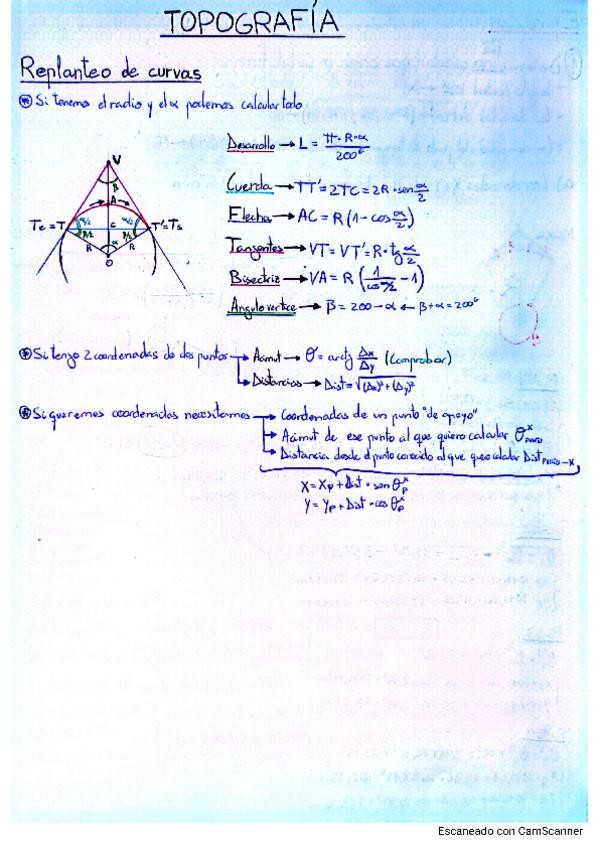 TOPOGRAFÍA
Replanteo de curvas
Si tenemos el radio y el α podemos calcular todo
Desarrollo → L = π·R·α / 200ᴳ
Cuerda → TT' = 2TC = 2R·sen α/2
Flecha → AC = R (1 - cos α/2)
Tangentes → VT = VT' = R·tg α/2
Bisectriz → VA = R (1/cos α/2 - 1)
Angulo vertice → β = 200 - α ← β + α = 200ᴳ
V
β
A
Te = T
α/2
C
α/2
T' = Ts
β/2
β/2
R
α
R
O
Si tengo 2 coordenadas de dos puntos → Azimut → θ = arctg Δx/Δy (Comprobar)
→ Distancias → Dist = √(Δx)² + (Δy)²
Si queremos coordenadas necesitamos → Coordenadas de un punto "de apoyo"
→ Azimut de ese punto al que quiero calcular θ
→ Distancia desde el punto conocido al que quiero calcular Dist
X = Xp + Dist · sen θₚˣ
Y = Yp + Dist · cos θₚˣ
Escaneado con CamScanner